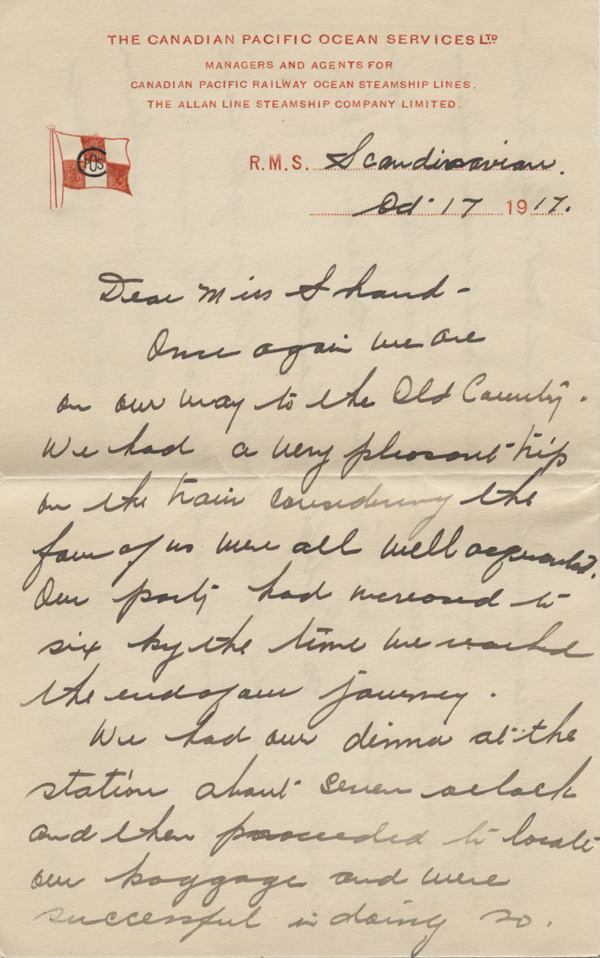 THE CANADIAN PACIFIC OCEAN SERVICES LTD
MANAGERS AND AGENTS FOR
CANADIAN PACIFIC RAILWAY OCEAN STEAMSHIP LINES.
THE ALLAN LINE STEAMSHIP COMPANY LIMITED.
CPOS
R.M.S. Scandinavian.
Oct 17 1917.
Dear Miss Shand -
Once again we are
on our way to the Old Country.
We had a very pleasant trip
on the train considering the
four of us were all well acquainted.
Our party had increased to
six by the time we reached
the end of our journey.
We had our dinner at the
station about seven oclock
and then proceeded to locate
our baggage and were
successful in doing so.